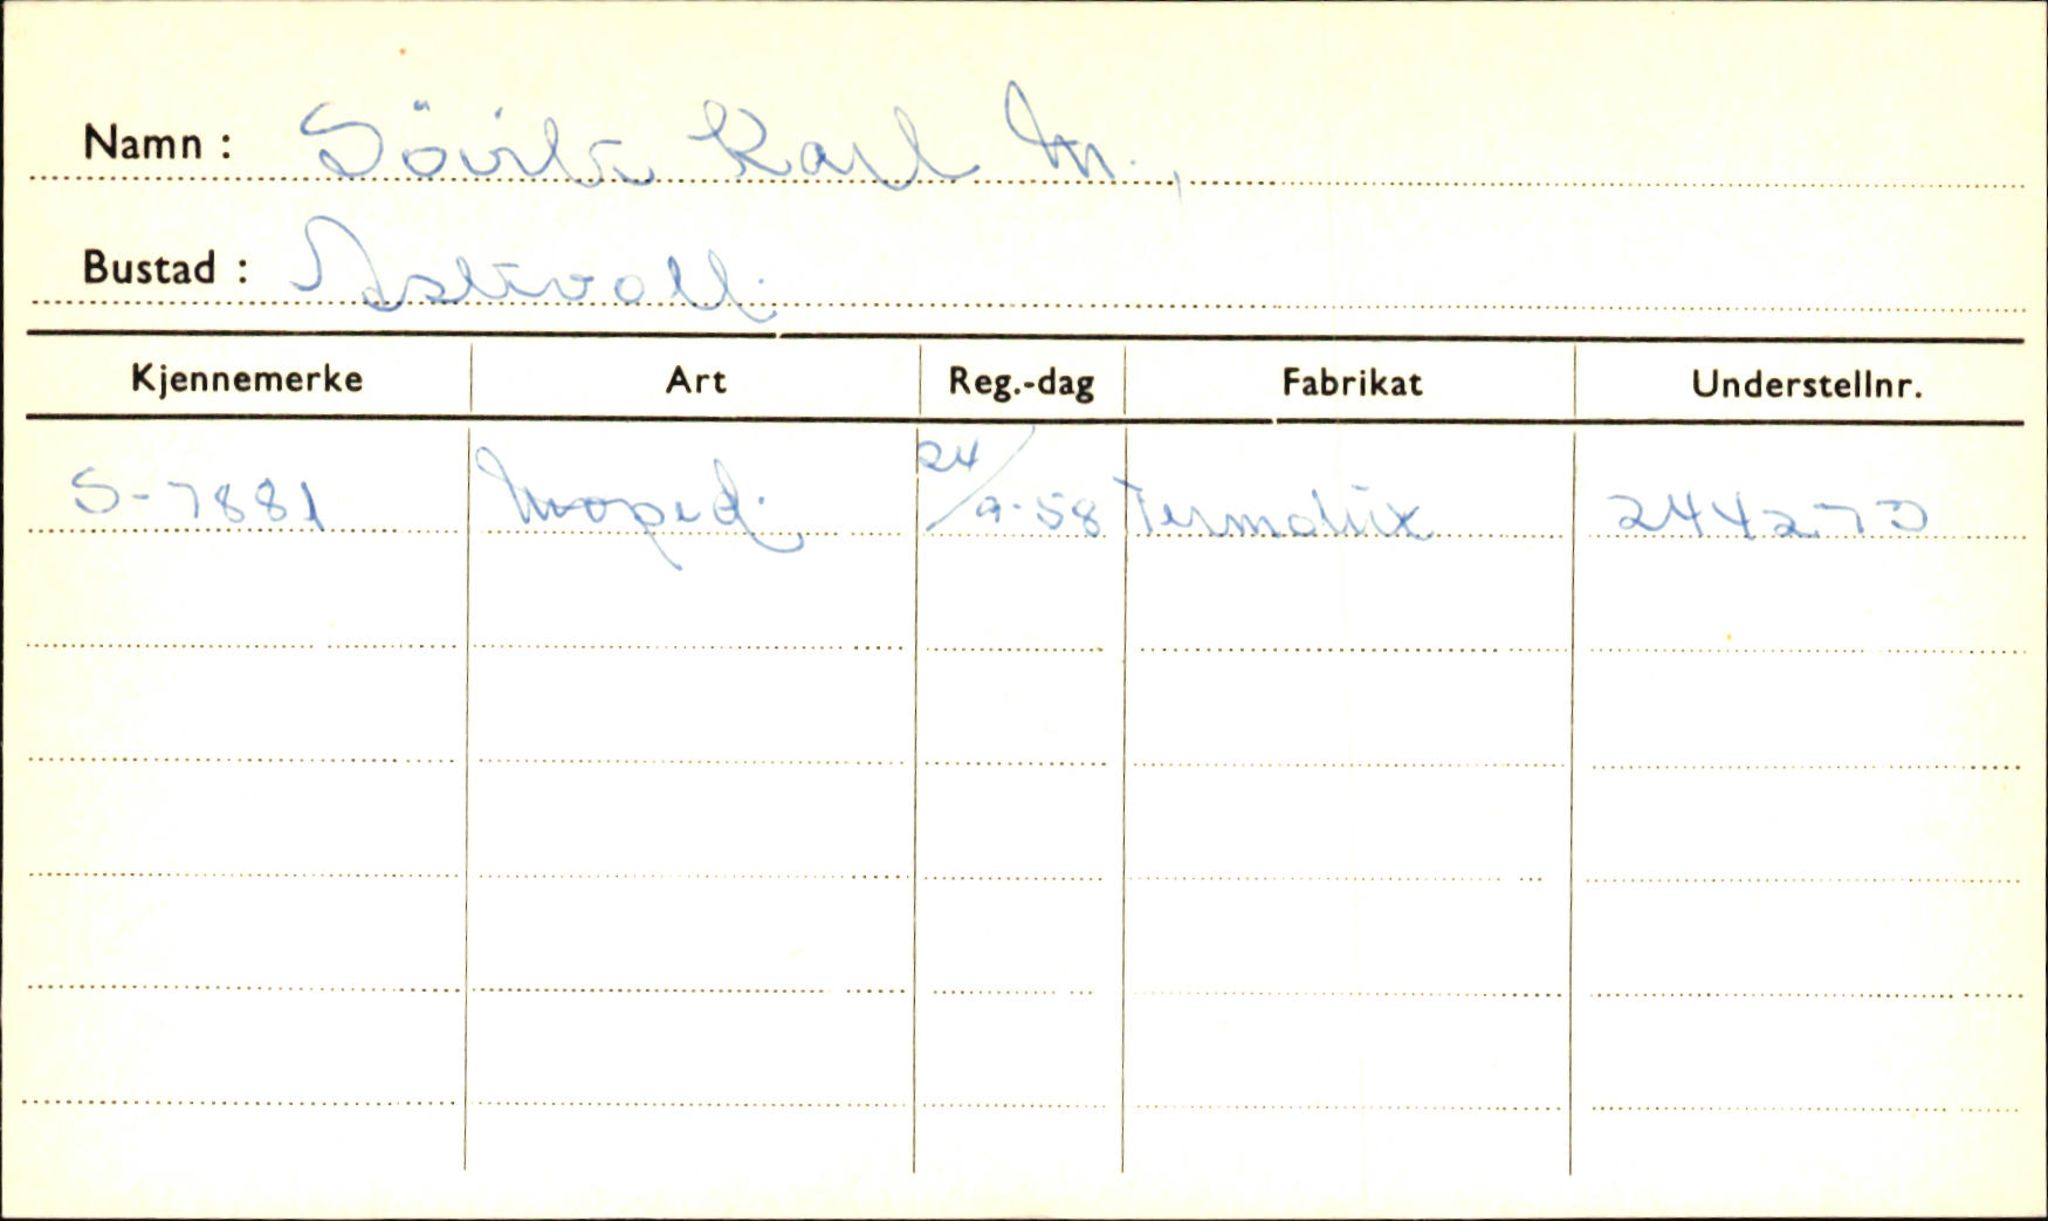 Namn : Sövik Karl M.,
Bustad : Askvoll.
Kjennemerke Art Reg.-dag Fabrikat Understellnr.
S-7881 Moped. 24/9-58 Termolux 244273